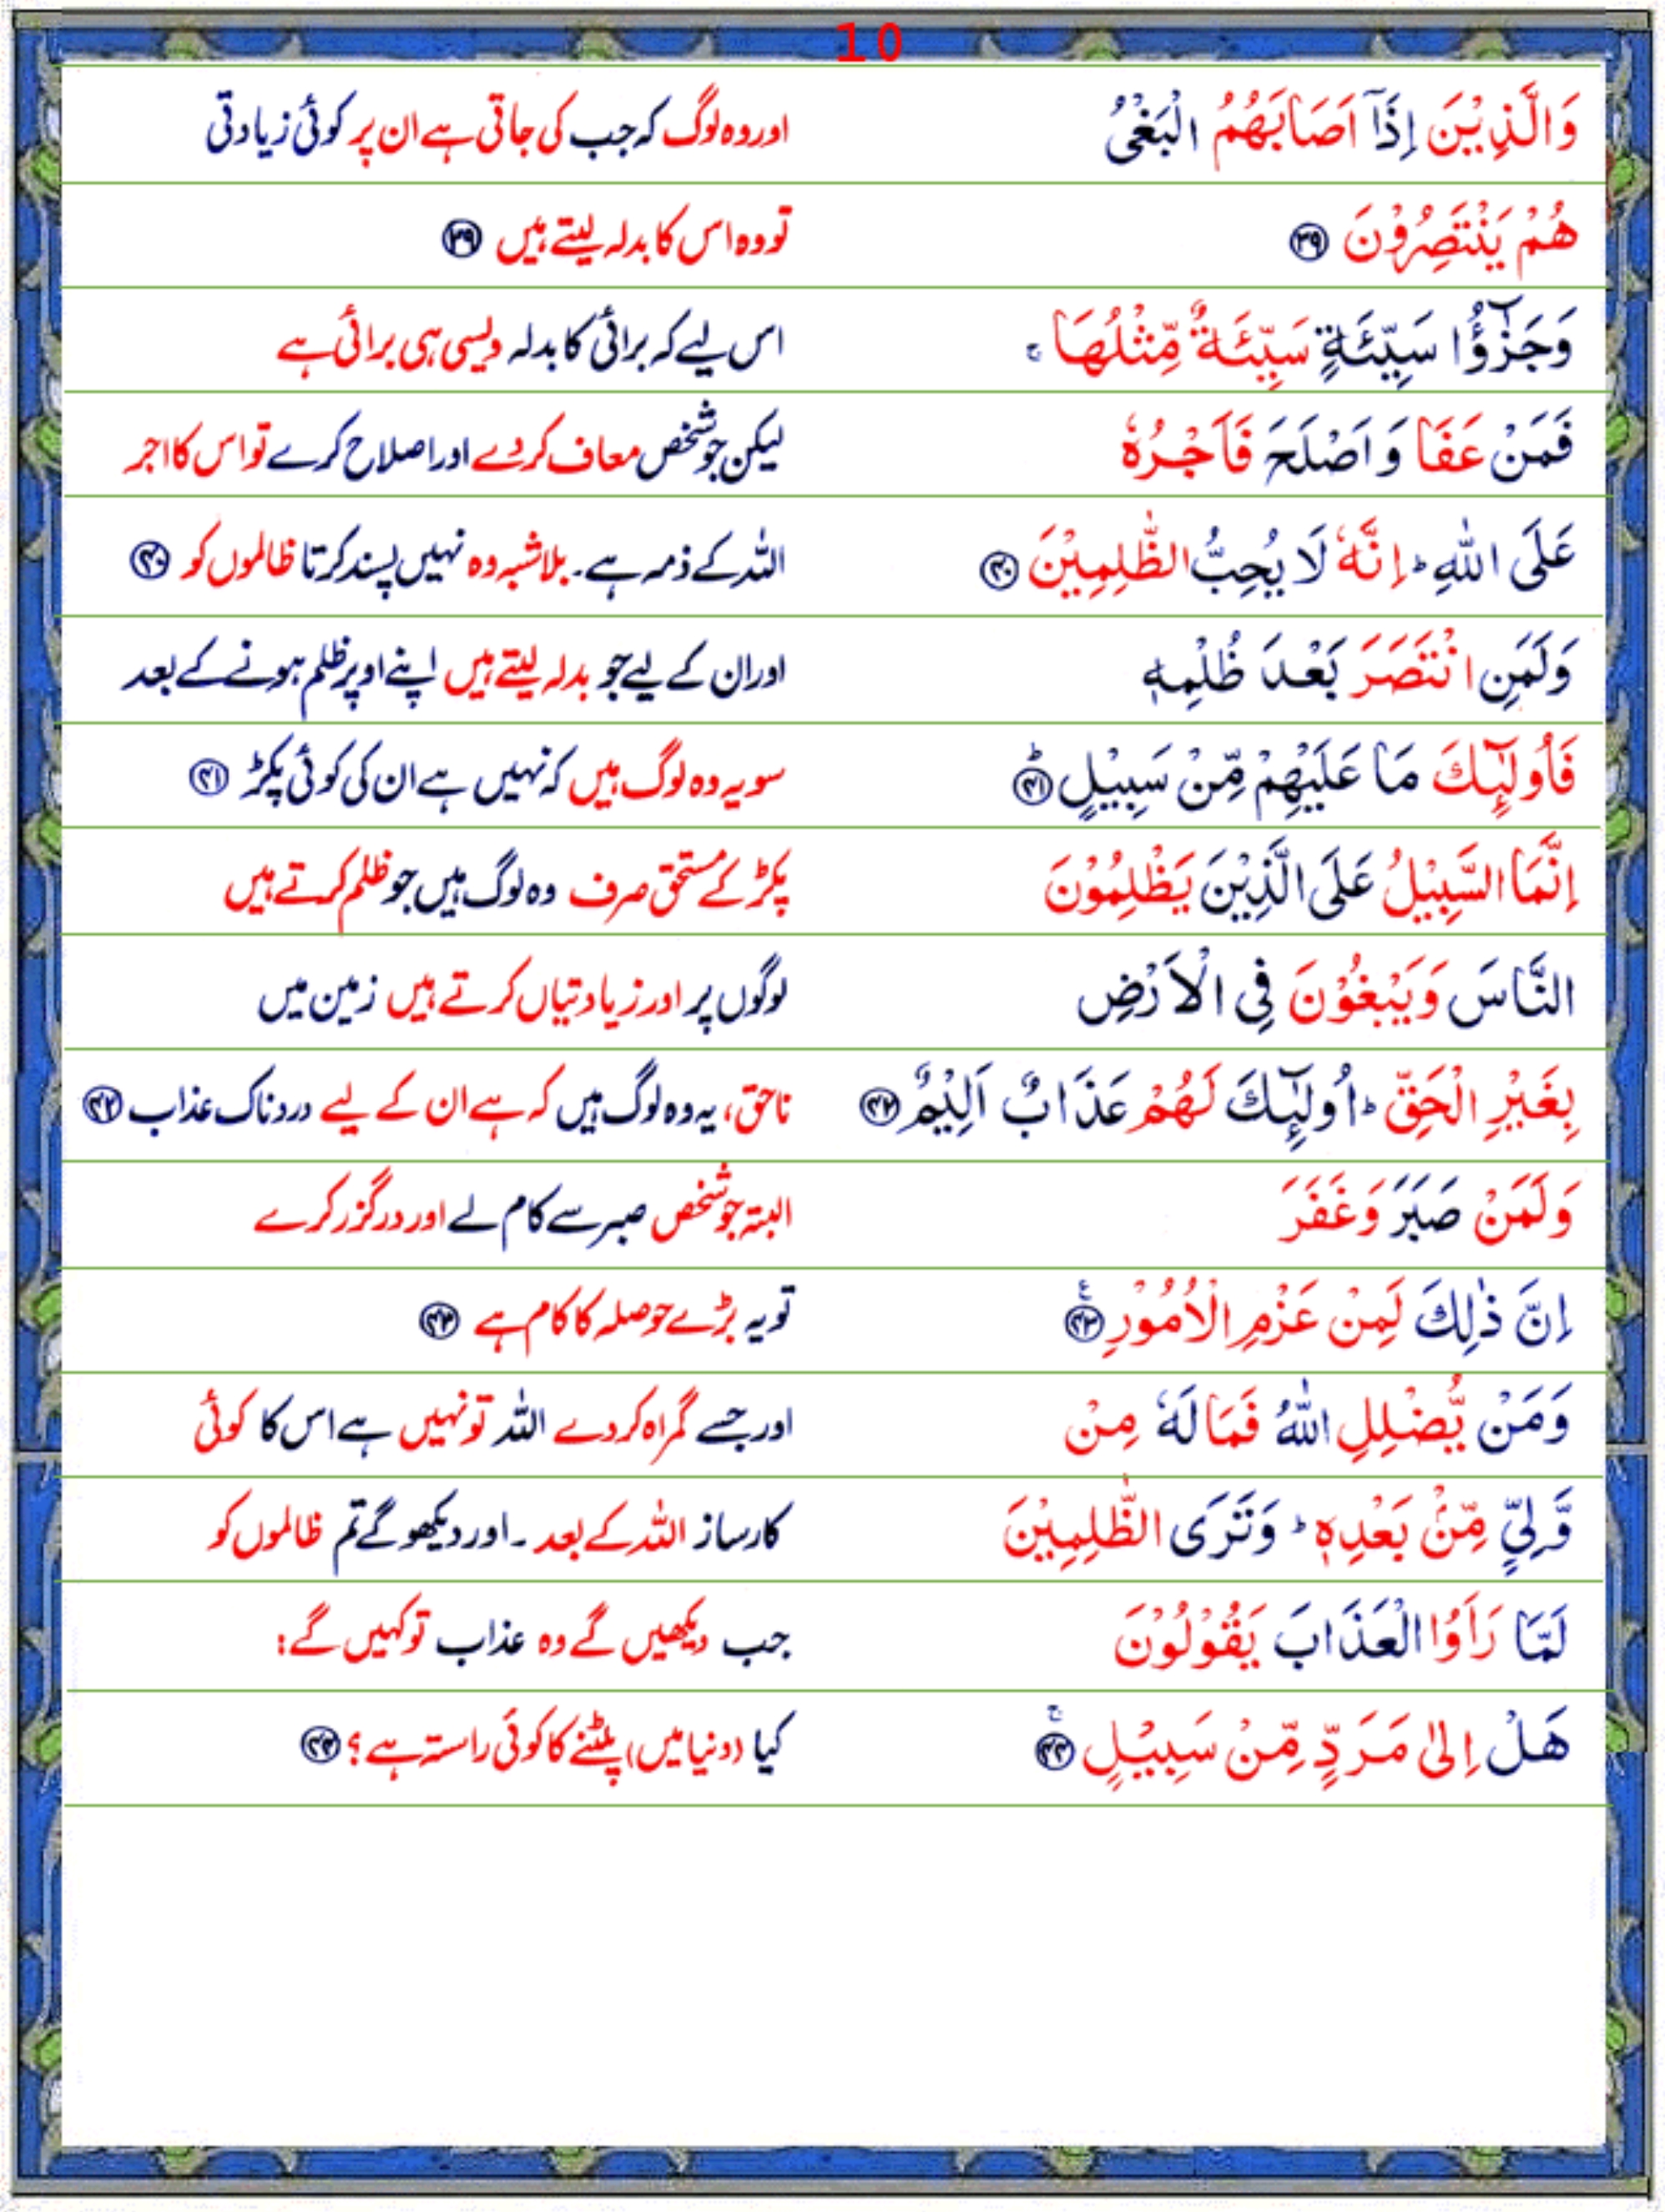 10
وَالَّذِيْنَ اِذَآ اَصَابَهُمُ الْبَغْىُ اور وہ لوگ کہ جب کی جاتی ہے ان پر کوئی زیادتی
هُمْ يَنْتَصِرُوْنَ ۳۹ تو وہ اس کا بدلہ لیتے ہیں ۳۹
وَجَزٰٓؤُا سَيِّئَةٍ سَيِّئَةٌ مِّثْلُهَا ۚ اس لیے کہ برائی کا بدلہ ویسی ہی برائی ہے
فَمَنْ عَفَا وَ اَصْلَحَ فَاَجْرُهٗ لیکن جو شخص معاف کردے اور اصلاح کرے تو اس کا اجر
عَلَى اللّٰهِ ؕ اِنَّهٗ لَا يُحِبُّ الظّٰلِمِيْنَ ۴۰ اللہ کے ذمہ ہے۔ بلاشبہ وہ نہیں پسند کرتا ظالموں کو ۴۰
وَلَمَنِ انْتَصَرَ بَعْدَ ظُلْمِهٖ اور ان کے لیے جو بدلہ لیتے ہیں اپنے اوپر ظلم ہونے کے بعد
فَاُولٰٓئِكَ مَا عَلَيْهِمْ مِّنْ سَبِيْلٍ ؕ ۴۱ سو یہ وہ لوگ ہیں کہ نہیں ہے ان کی کوئی پکڑ ۴۱
اِنَّمَا السَّبِيْلُ عَلَى الَّذِيْنَ يَظْلِمُوْنَ پکڑ کے مستحق صرف وہ لوگ ہیں جو ظلم کرتے ہیں
النَّاسَ وَيَبْغُوْنَ فِى الْاَرْضِ لوگوں پر اور زیادتیاں کرتے ہیں زمین میں
بِغَيْرِ الْحَقِّ ؕ اُولٰٓئِكَ لَهُمْ عَذَابٌ اَلِيْمٌ ۴۲ ناحق، یہ وہ لوگ ہیں کہ ہے ان کے لیے دردناک عذاب ۴۲
وَلَمَنْ صَبَرَ وَغَفَرَ البتہ جو شخص صبر سے کام لے اور درگزر کرے
اِنَّ ذٰلِكَ لَمِنْ عَزْمِ الْاُمُوْرِ ۴۳ ع تو یہ بڑے حوصلہ کا کام ہے ۴۳
وَمَنْ يُّضْلِلِ اللّٰهُ فَمَا لَهٗ مِنْ اور جسے گمراہ کردے اللہ تو نہیں ہے اس کا کوئی
وَّلِىٍّ مِّنْۢ بَعْدِهٖ ؕ وَتَرَى الظّٰلِمِيْنَ کارساز اللہ کے بعد ۔ اور دیکھو گے تم ظالموں کو
لَمَّا رَاَوُا الْعَذَابَ يَقُوْلُوْنَ جب دیکھیں گے وہ عذاب تو کہیں گے:
هَلْ اِلٰى مَرَدٍّ مِّنْ سَبِيْلٍ ۚ ۴۴ کیا (دنیا میں) پلٹنے کا کوئی راستہ ہے؟ ۴۴